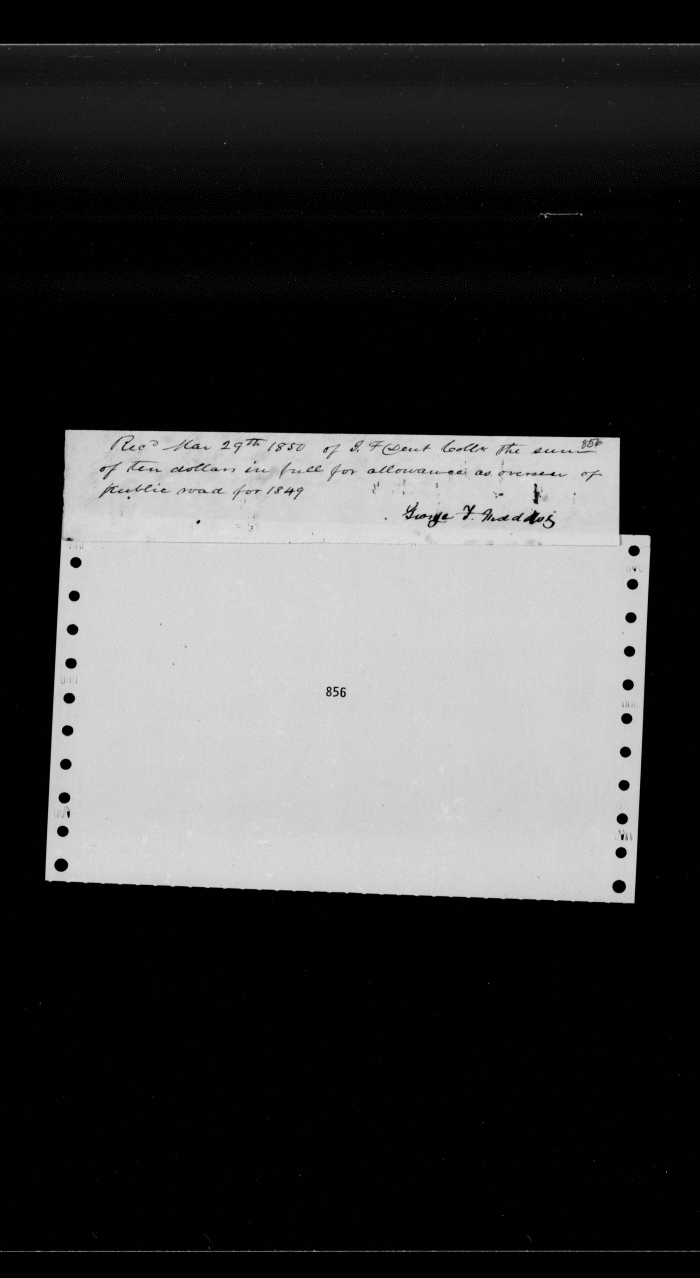 856
Recd Mar 29th 1850 of G. F Dent Collr the sum
of ten dollars in full for allowance as overseer of
public road for 1849
George F. Maddox
856